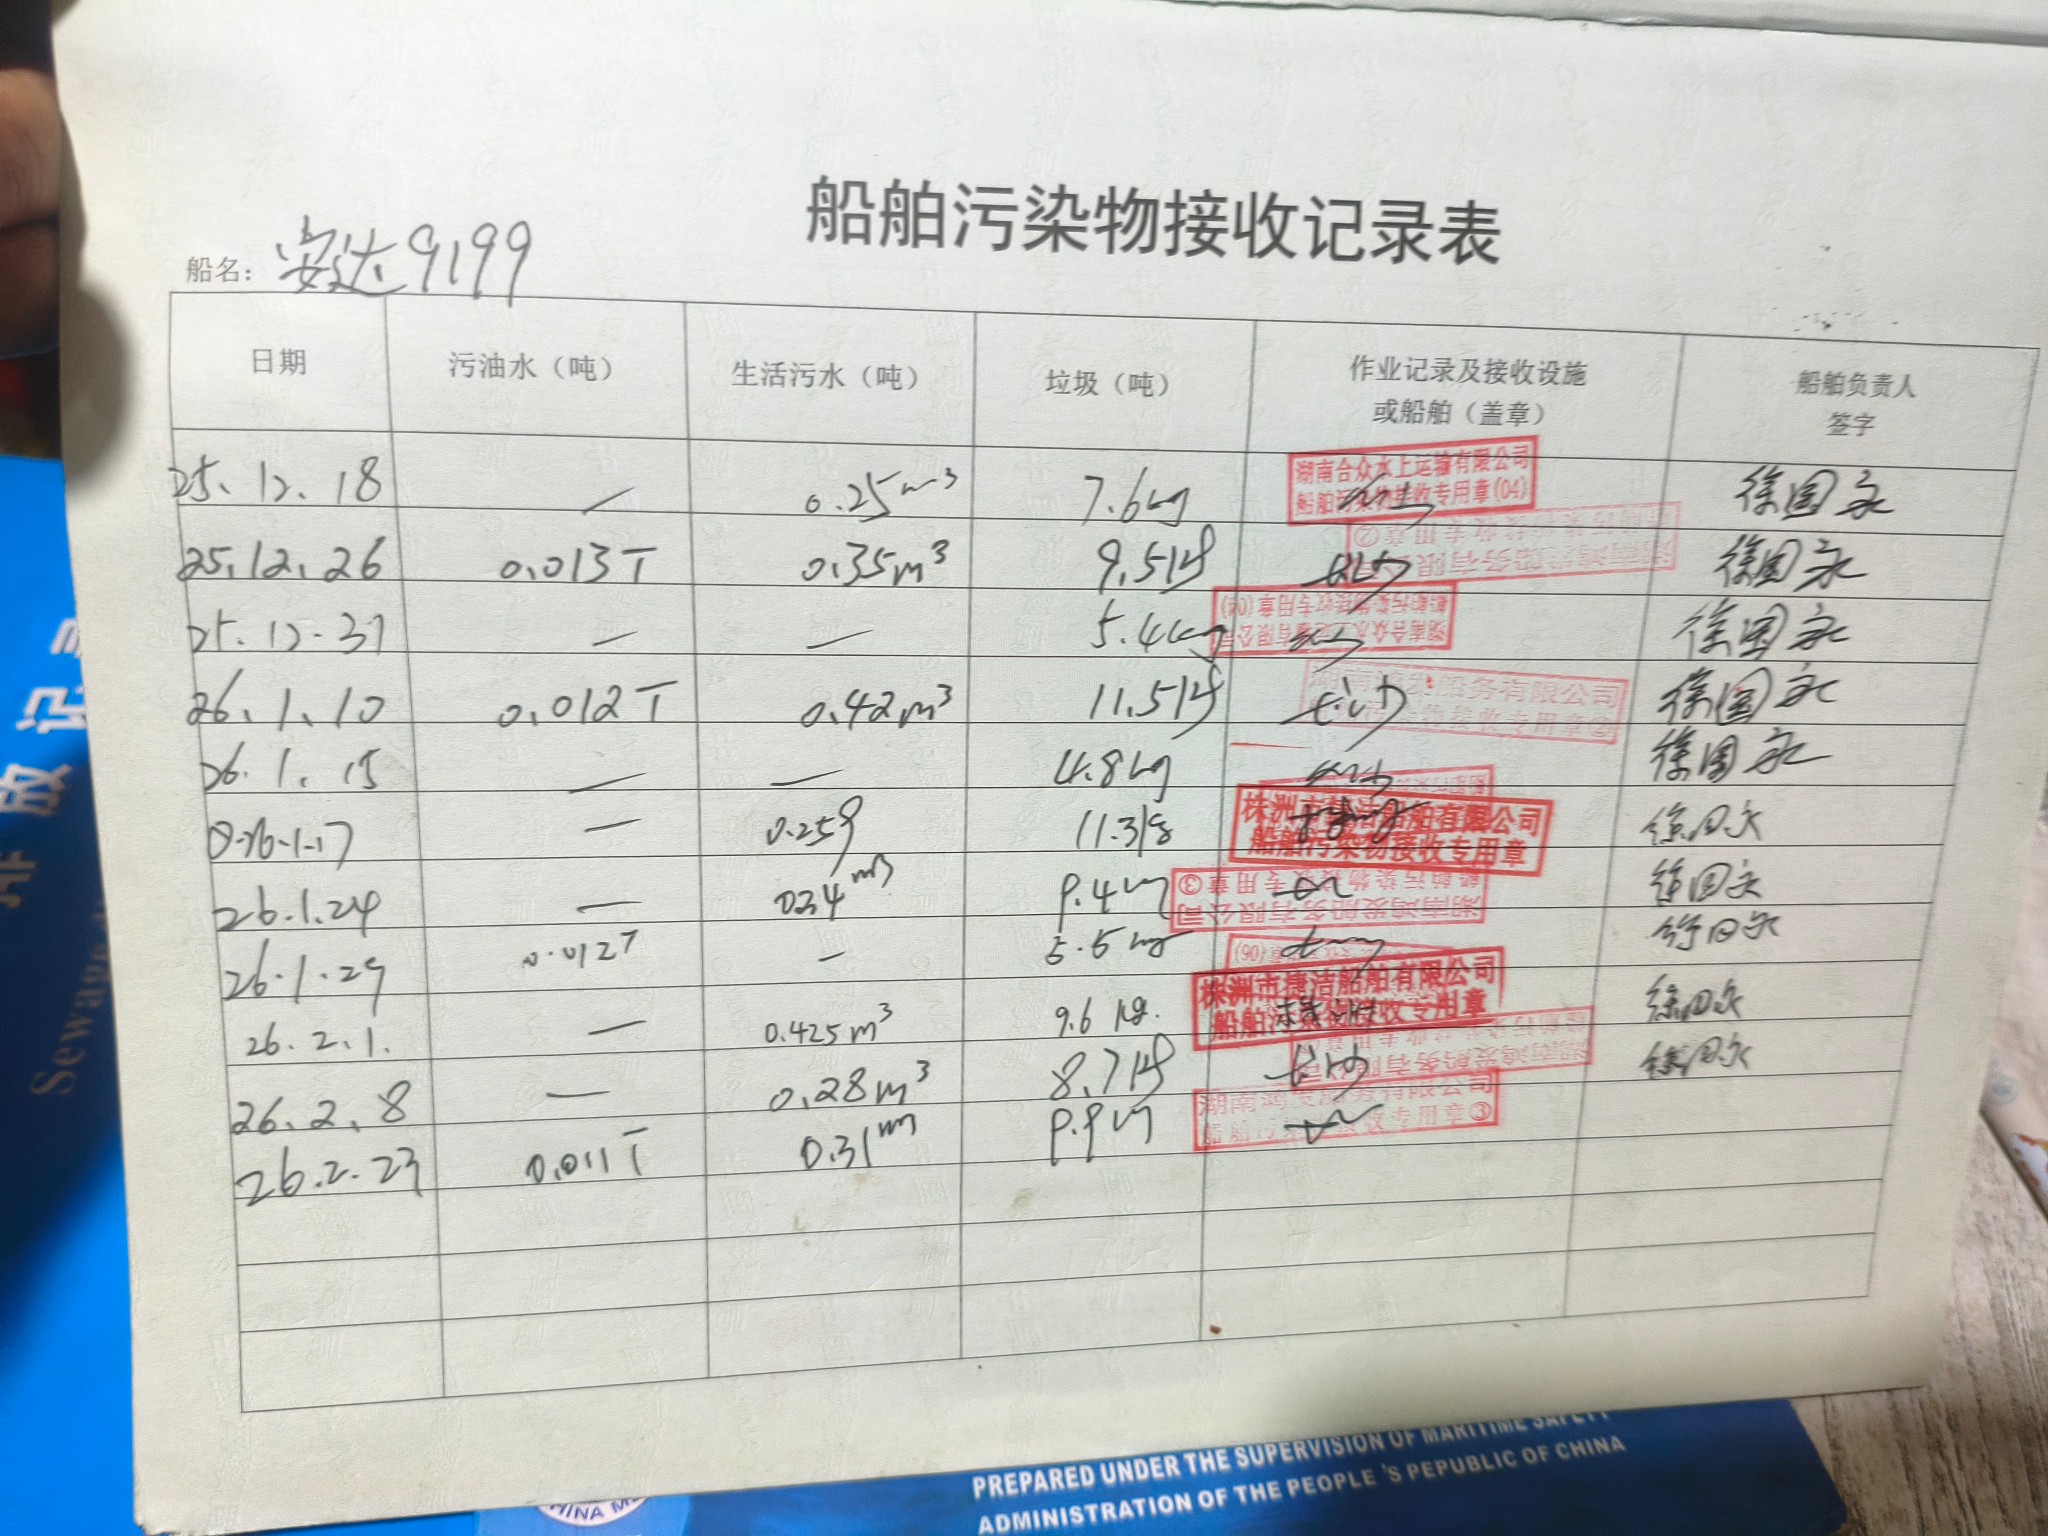 船舶污染物接收记录表
船名： 安达9199
日期 污油水（吨） 生活污水（吨） 垃圾（吨） 作业记录及接收设施或船舶（盖章） 船舶负责人签字
25.12.18 — 0.25m³ 7.6kg 湖南合众水上运输有限公司 船舶污染物接收专用章(04) 徐国永
25.12.26 0.013T 0.35m³ 9.5kg 长沙 徐国永
25.12.31 — — 5.4kg 湖南合众水上运输有限公司 船舶污染物接收专用章(04) 徐国永
26.1.10 0.012T 0.42m³ 11.5kg 长沙 船务有限公司 接收专用章② 徐国永
26.1.15 — — 4.8kg 徐国永
26.1.17 — 0.259 11.3kg 株洲市捷洁船舶有限公司 船舶污染物接收专用章 徐国永
26.1.24 — 0.34m³ 9.4kg 湖南鸿发船务有限公司 船舶污染物接收专用章③ 徐国永
26.1.29 0.012T — 5.5kg 徐国永
26.2.1. — 0.425m³ 9.6kg. 株洲市捷洁船舶有限公司 船舶污染物接收专用章 徐国永
26.2.8 — 0.28m³ 8.7kg 长沙 湖南鸿发船务有限公司 徐国永
26.2.23 0.011T 0.31m³ 9.9kg 湖南鸿发船务有限公司 船舶污染物接收专用章③
Sewage
PREPARED UNDER THE SUPERVISION OF MARITIME SAFETY
ADMINISTRATION OF THE PEOPLE'S REPUBLIC OF CHINA